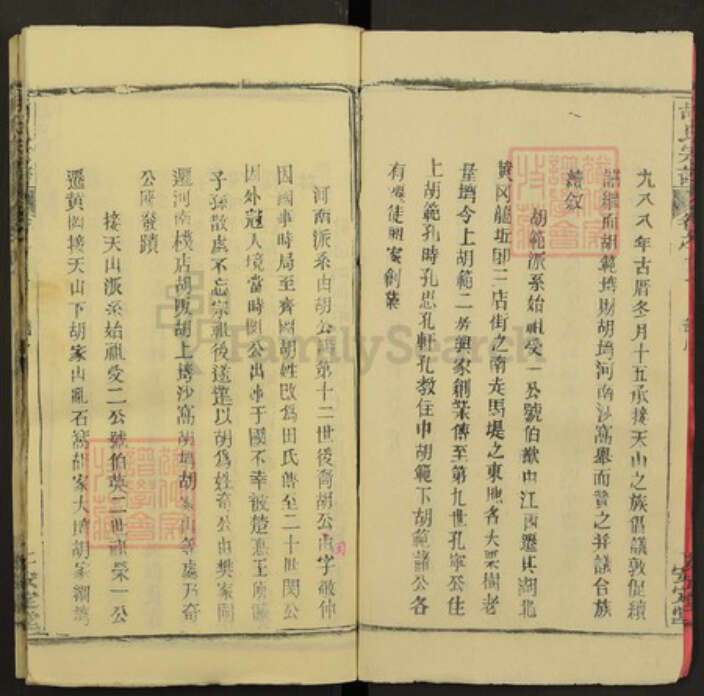 九八八年古厝冬月十五承接天山之族倡議敦促續
譜繼而胡範塆財胡塆河南沙窩舉而贊之并議合族
譜敘
胡範派系始祖受一公號伯歡由江西遷其湖北
黄冈龍坵即三店街之南走馬堤之東地名大栗樹老
屋塆今上胡範二房興家創業傳至第九世孔寧公住
上胡範孔時孔思孔軒孔教住中胡範下胡範諸公各
有 徒興家創業
河南派系由胡公滿第十二世後裔胡公 字敬仲
因國事時局至齊國胡姓改爲田氏傳至二十世閔公
因外冠入境當時閔公出事于國不幸被楚惠王
子孫散處不忘宗祖後遂遷以胡爲姓奇公由樊家
遷河南棧店胡畈胡上塆沙窩胡塆胡 山等處乃奇
公陣發蹟
接天山派系始祖受二公號伯英二世 榮一公
遷黄岡接天山下胡家山亂石窩胡家大塆胡家
FamilySearch